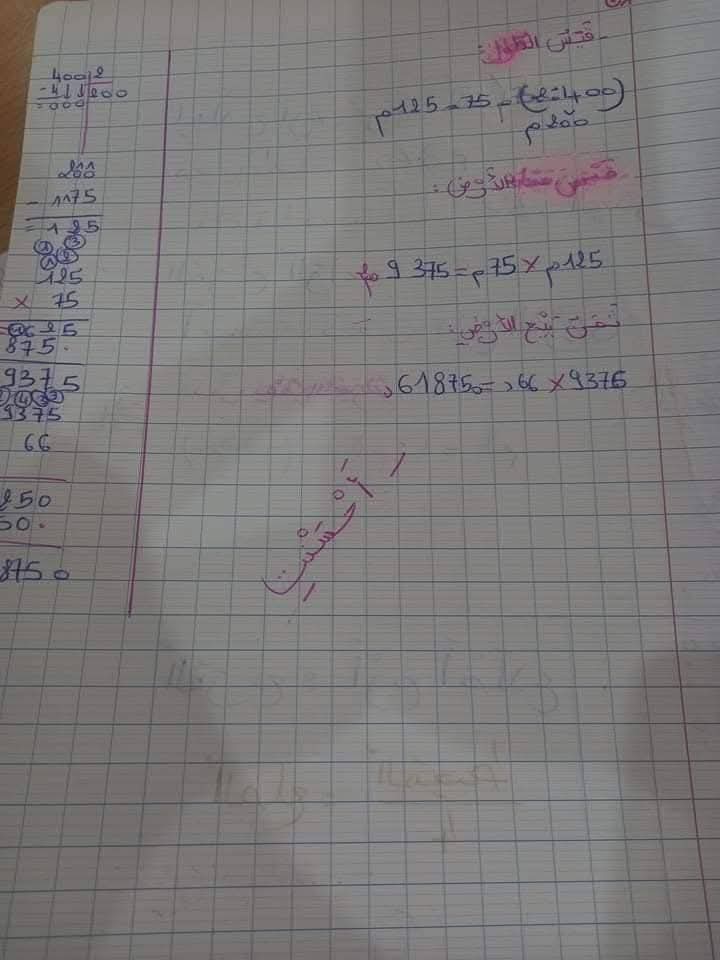 قيس الطول:
(400:2) - 75 = 125م
200م
قيس مساحة الأرض:
125م × 75م = 9375 م²
ثمن بيع الأرض:
9375 × 66د = 618750د
أحسنت
400 2
200
000
200
- 1175
= 125
125
× 75
625
875.
9375
9375
66
250
50.
8750